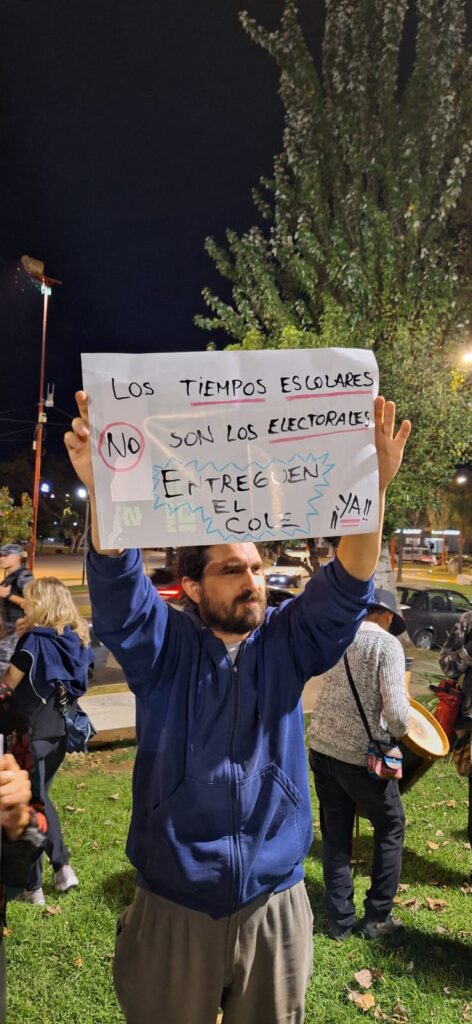 LOS TIEMPOS ESCOLARES
NO SON LOS ELECTORALES
ENTREGUEN
EL
COLE ¡¡YA!!